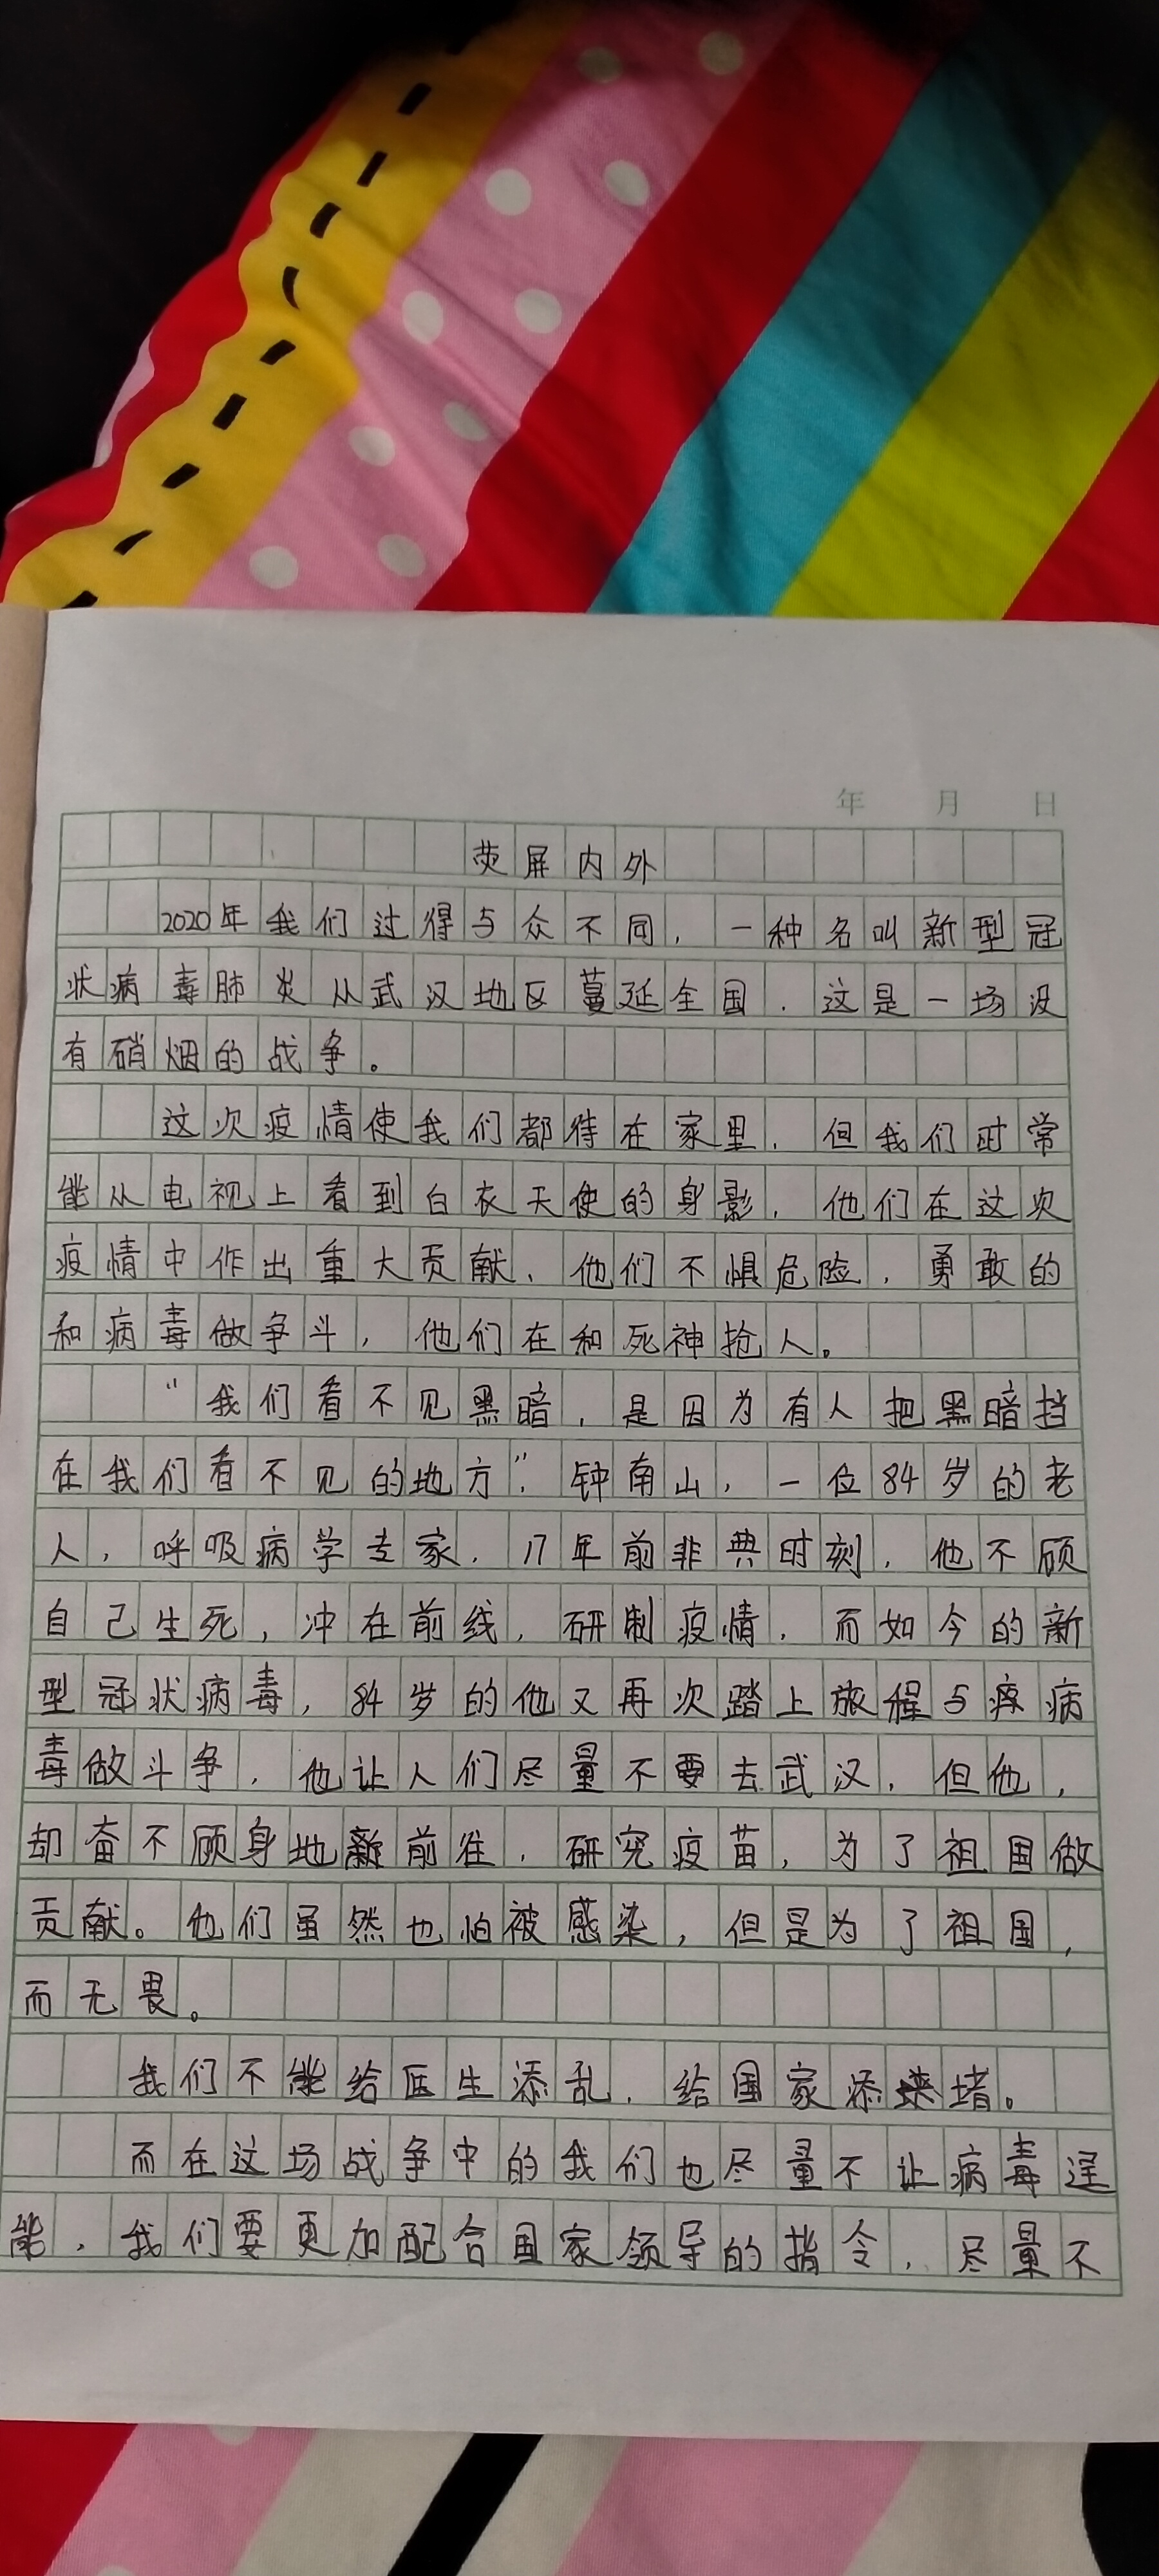 年 月 日
荧屏内外
2020年我们过得与众不同，一种名叫新型冠
状病毒肺炎从武汉地区蔓延全国．这是一场没
有硝烟的战争。
这次疫情使我们都待在家里，但我们时常
能从电视上看到白衣天使的身影，他们在这次
疫情中作出重大贡献、他们不惧危险，勇敢的
和病毒做争斗，他们在和死神抢人。
“我们看不见黑暗，是因为有人把黑暗挡
在我们看不见的地方”．钟南山，一位84岁的老
人，呼吸病学专家．17年前非典时刻，他不顾
自己生死，冲在前线，研制疫情．而如今的新
型冠状病毒，84岁的他又再次踏上旅程与疼病
毒做斗争．他让人们尽量不要去武汉．但他，
却奋不顾身地前往．研究疫苗，为了祖国做
贡献。他们虽然也怕被感染，但是为了祖国，
而无畏。
我们不能给医生添乱．给国家添堵。
而在这场战争中的我们也尽量不让病毒逞
能．我们要更加配合国家领导的指令，尽量不